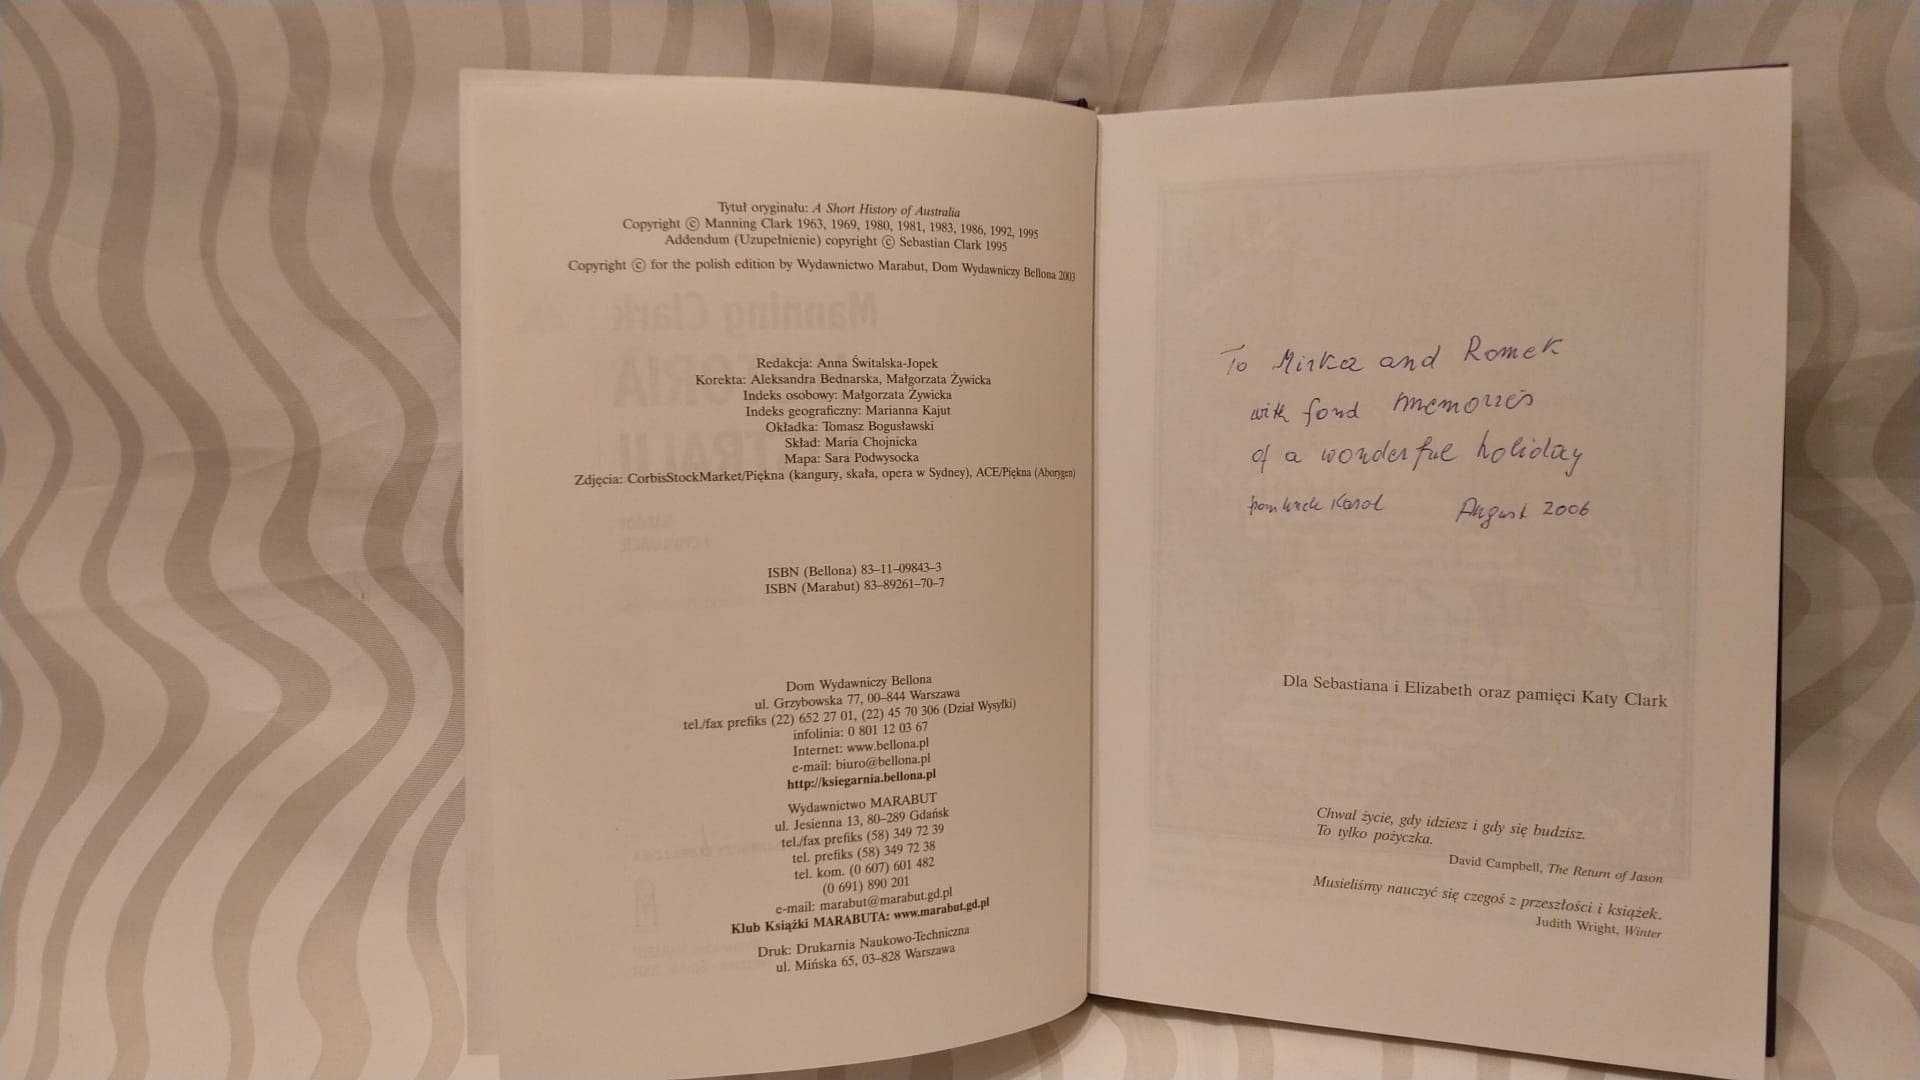 Tytuł oryginału: A Short History of Australia
Copyright © Manning Clark 1963, 1969, 1980, 1981, 1983, 1986, 1992, 1995
Addendum (Uzupełnienie) copyright © Sebastian Clark 1995
Copyright © for the polish edition by Wydawnictwo Marabut, Dom Wydawniczy Bellona 2003
Redakcja: Anna Świtalska-Jopek
Korekta: Aleksandra Bednarska, Małgorzata Żywicka
Indeks osobowy: Małgorzata Żywicka
Indeks geograficzny: Marianna Kajut
Okładka: Tomasz Bogusławski
Skład: Maria Chojnicka
Mapa: Sara Podwysocka
Zdjęcia: CorbisStockMarket/Piękna (kangury, skała, opera w Sydney), ACE/Piękna (Aborygen)
ISBN (Bellona) 83–11–09843–3
ISBN (Marabut) 83–89261–70–7
Dom Wydawniczy Bellona
ul. Grzybowska 77, 00–844 Warszawa
tel./fax prefiks (22) 652 27 01, (22) 45 70 306 (Dział Wysyłki)
infolinia: 0 801 12 03 67
Internet: www.bellona.pl
e-mail: biuro@bellona.pl
http://ksiegarnia.bellona.pl
Wydawnictwo MARABUT
ul. Jesienna 13, 80–289 Gdańsk
tel./fax prefiks (58) 349 72 39
tel. prefiks (58) 349 72 38
tel. kom. (0 607) 601 482
(0 691) 890 201
e-mail: marabut@marabut.gd.pl
Klub Książki MARABUTA: www.marabut.gd.pl
Druk: Drukarnia Naukowo-Techniczna
ul. Mińska 65, 03–828 Warszawa
To Mirka and Romek
with fond memories
of a wonderful holiday
from Karol August 2006
Dla Sebastiana i Elizabeth oraz pamięci Katy Clark
Chwal życie, gdy idziesz i gdy się budzisz.
To tylko pożyczka.
David Campbell, The Return of Jason
Musieliśmy nauczyć się czegoś z przeszłości i książek.
Judith Wright, Winter